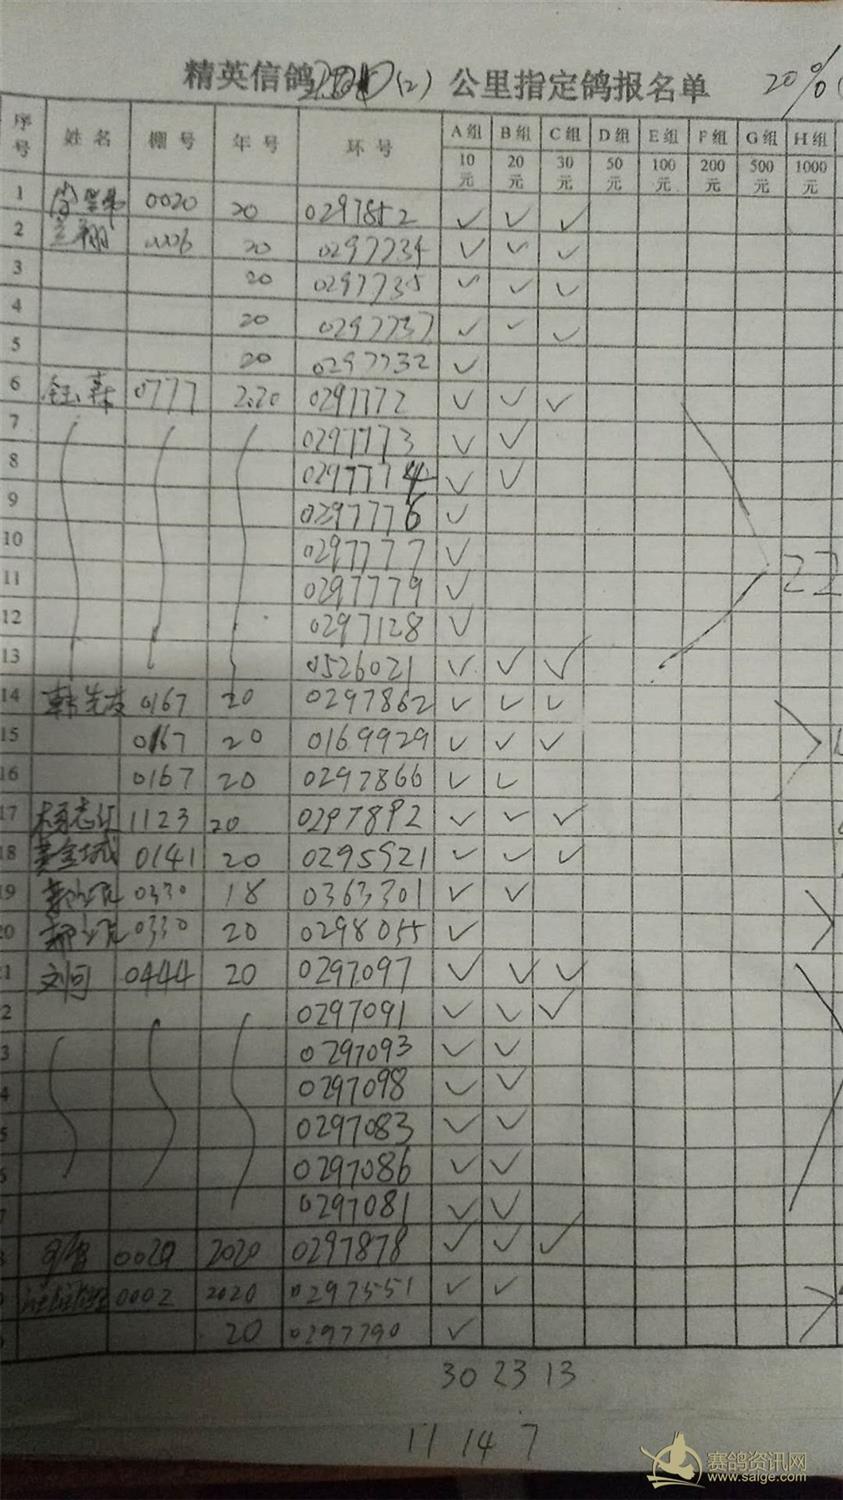 精英信鸽 (2) 公里指定鸽报名单 20%
序号 姓名 棚号 年号 环号 A组 B组 C组 D组 E组 F组 G组 H组
10元 20元 30元 50元 100元 200元 500元 1000元
1 0020 20 0297852 ✓ ✓ ✓
2 20 0297734 ✓ ✓ ✓
3 20 0297735 ✓ ✓ ✓
4 20 0297737 ✓ ✓ ✓
5 20 0297732 ✓
6 0777 2020 0297772 ✓ ✓ ✓
7 0297773 ✓ ✓
8 0297774 ✓ ✓
9 0297776 ✓
10 0297777 ✓
11 0297779 ✓ 22
12 0297128 ✓
13 0526021 ✓ ✓ ✓
14 韩先发 0167 20 0297862 ✓ ✓ ✓
15 0167 20 0169929 ✓ ✓ ✓
16 0167 20 0297866 ✓ ✓
17 杨志江 1123 20 0297892 ✓ ✓ ✓
18 黄金城 0141 20 0295921 ✓ ✓ ✓
19 0330 18 0363301 ✓ ✓
20 0330 20 0298055 ✓
1 刘可 0444 20 0297097 ✓ ✓ ✓
2 0297091 ✓ ✓ ✓
3 0297093 ✓ ✓
4 0297098 ✓ ✓
5 0297083 ✓ ✓
6 0297086 ✓ ✓
7 0297081 ✓ ✓
8 2020 0297878 ✓ ✓ ✓
0002 2020 0297551 ✓ ✓
20 0297790 ✓
30 23 13
11 14 7
赛鸽资讯网
www.saige.com